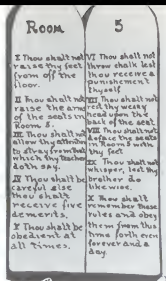 Room
5
I Thou shalt not
raise thy feet
from off the
floor.
II Thou shalt not
raise the arm
of the seats in
Room 5.
III Thou shalt not
allow thy attention
to stray from that
which thy teacher
doth say.
IV Thou shalt be
careful else
thou shalt
receive five
demerits.
V Thou shalt be
obedient at
all times.
VI Thou shalt not
throw chalk lest
thou receive a
punishement
thyself.
VII Thou shalt not
rest thy weary
head upon the
back of the seat.
VIII Thou shalt not
deface the seats
in Room 5 with
thy feet.
IX Thou shalt not
whisper, lest thy
brother do
likewise.
X Thou shalt
remember these
rules and obey
them from this
time forth even
forever and a
day.